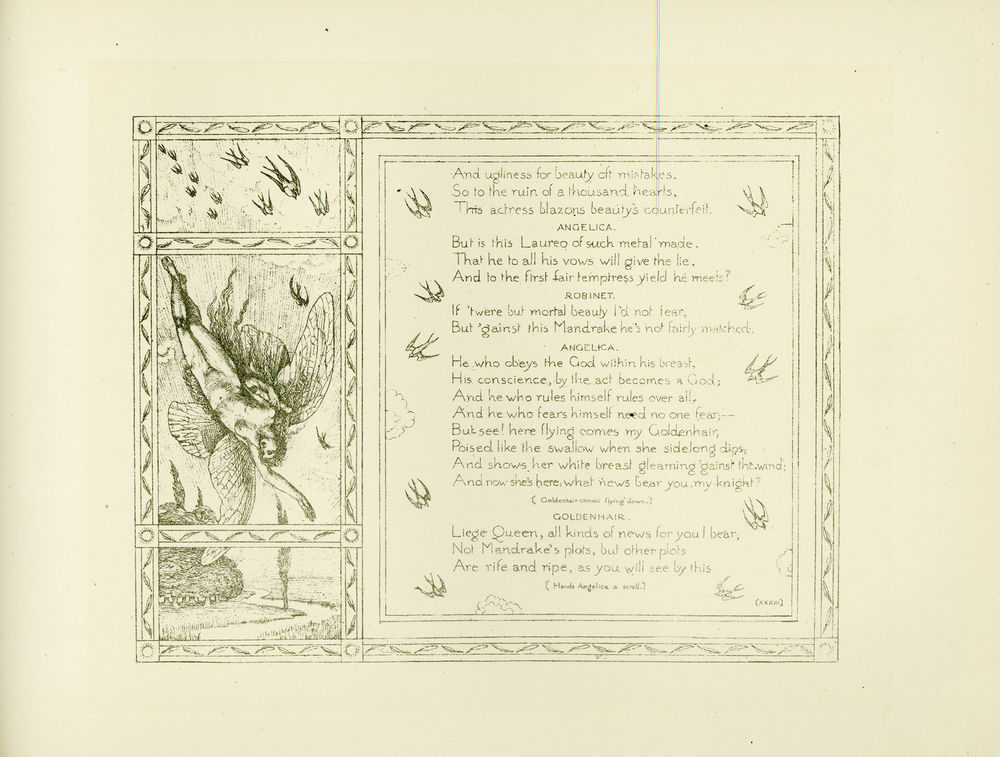 And ugliness for beauty oft mistakes,
So to the ruin of a thousand hearts,
This actress blazons beauty's counterfeit.
ANGELICA.
But is this Laureo of such metal made,
That he to all his vows will give the lie,
And to the first fair temptress yield he meets?
ROBINET.
If 'twere but mortal beauty I'd not fear,
But 'gainst this Mandrake he's not fairly matched.
ANGELICA.
He who obeys the God within his breast,
His conscience, by the act becomes a God;
And he who rules himself rules over all,
And he who fears himself need no one fear;—
But see! here flying comes my Goldenhair,
Poised like the swallow when she sidelong dips,
And shows her white breast gleaming 'gainst the wind;
And now she's here: what news bear you, my knight?
( Goldenhair comes flying down.)
GOLDENHAIR.
Liege Queen, all kinds of news for you I bear,
Not Mandrake's plots, but other plots
Are rife and ripe, as you will see by this
( Hands Angelica a scroll.)
(XXXVII)